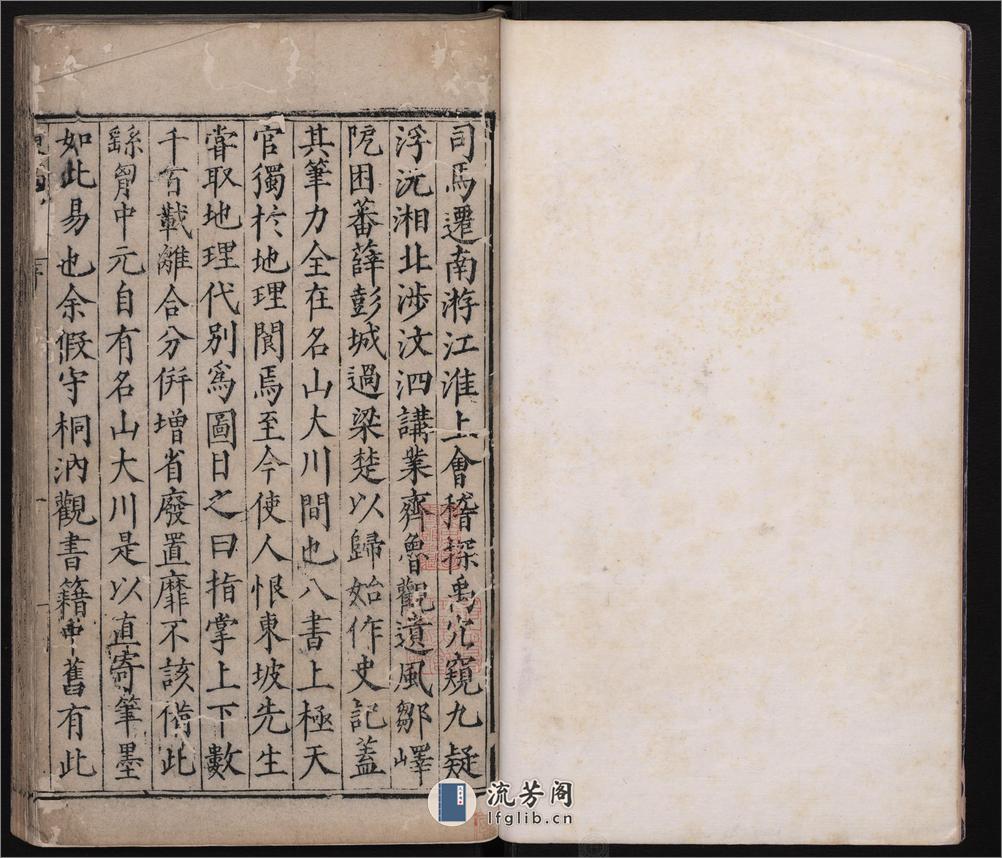 司馬遷南游江淮上會稽探禹穴窺九疑
浮沅湘北涉汶泗講業齊魯觀遺風鄒嶧
阨困蕃薛彭城過梁楚以歸始作史記蓋
其筆力全在名山大川間也八書上極天
官獨於地理闕焉至今使人恨東坡先生
甞取地理代別爲圖目之曰指掌上下數
千百載離合分倂增省廢置靡不該備此
繇胷中元自有名山大川是以直寄筆墨
如此易也余假守桐汭觀書籍中舊有此
流芳阁
lfglib.cn